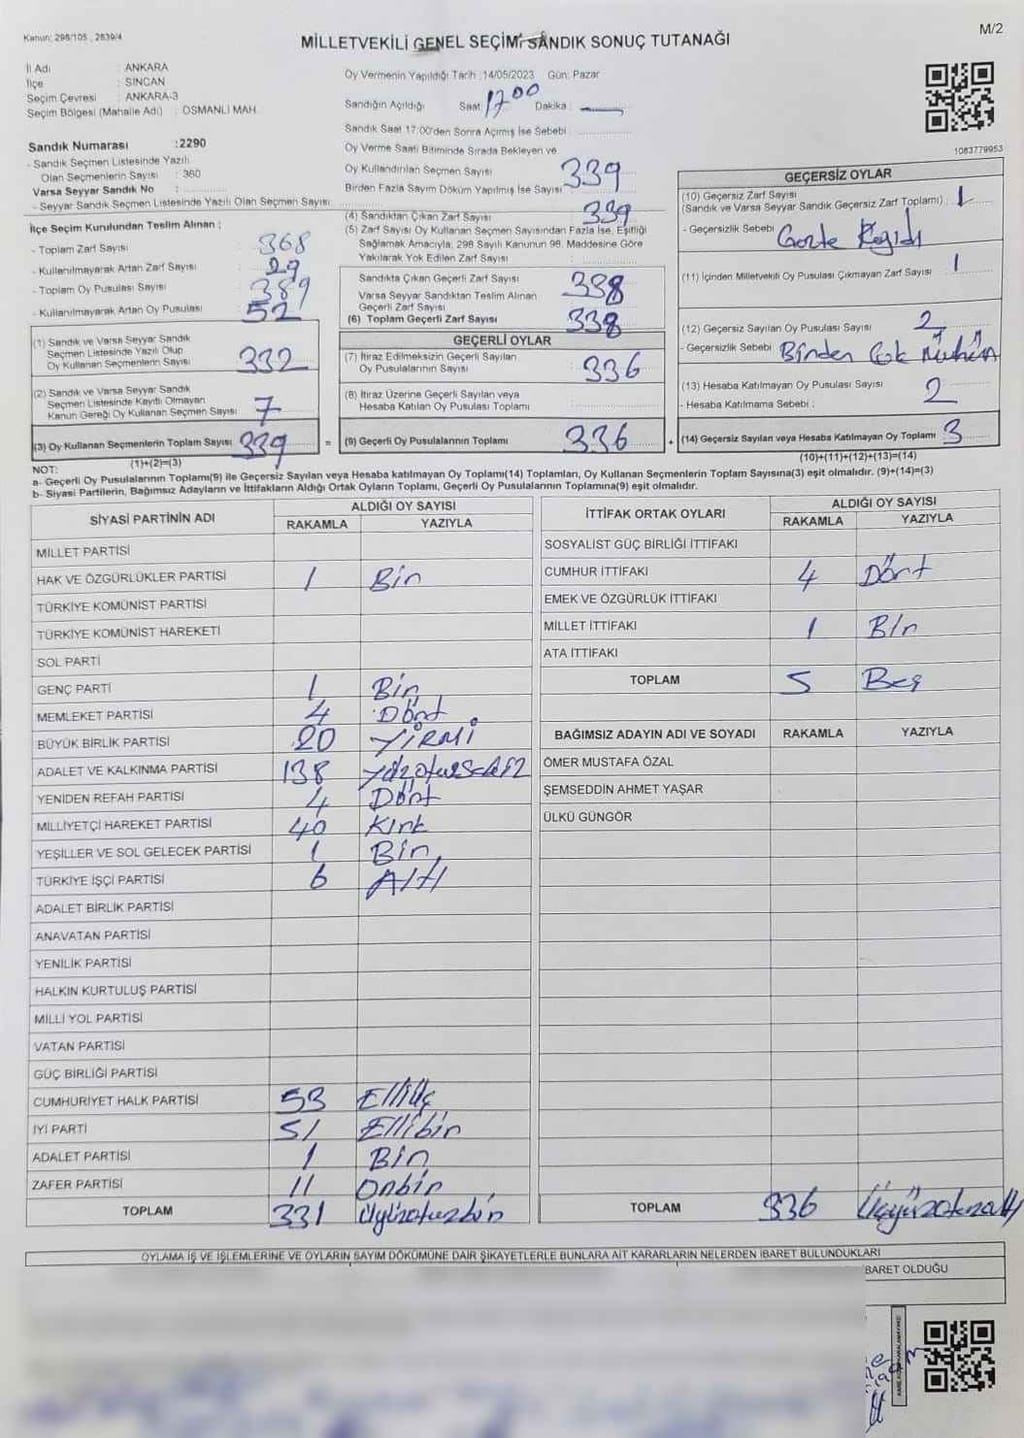 Kanun: 298/105 , 2839/4
M/2
MİLLETVEKİLİ GENEL SEÇİMİ SANDIK SONUÇ TUTANAĞI
İl Adı : ANKARA
İlçe : SİNCAN
Seçim Çevresi : ANKARA-3
Seçim Bölgesi (Mahalle Adı) : OSMANLI MAH.
Sandık Numarası :2290
- Sandık Seçmen Listesinde Yazılı
Olan Seçmenlerin Sayısı : 360
Varsa Seyyar Sandık No :
- Seyyar Sandık Seçmen Listesinde Yazılı Olan Seçmen Sayısı:
Oy Vermenin Yapıldığı Tarih :14/05/2023 Gün: Pazar
Sandığın Açıldığı Saat 17 00 Dakika : —
Sandık Saat 17:00'den Sonra Açımış İse Sebebi :
Oy Verme Saati Bitiminde Sırada Bekleyen ve
Oy Kullandırılan Seçmen Sayısı 339
Birden Fazla Sayım Döküm Yapılmış İse Sayısı
1083779953
İlçe Seçim Kurulundan Teslim Alınan ;
- Toplam Zarf Sayısı 368
- Kullanılmayarak Artan Zarf Sayısı 29
- Toplam Oy Pusulası Sayısı 389
- Kullanılmayarak Artan Oy Pusulası 52
(1) Sandık ve Varsa Seyyar Sandık
Seçmen Listesinde Yazılı Olup
Oy Kullanan Seçmenlerin Sayısı 332
(2) Sandık ve Varsa Seyyar Sandık
Seçmen Listesinde Kayıtlı Olmayan
Kanun Gereği Oy Kullanan Seçmen Sayısı 7
(3) Oy Kullanan Seçmenlerin Toplam Sayısı 339
(1)+(2)=(3)
(4) Sandıktan Çıkan Zarf Sayısı 339
(5) Zarf Sayısı Oy Kullanan Seçmen Sayısından Fazla İse, Eşitliği
Sağlamak Amacıyla, 298 Sayılı Kanunun 98. Maddesine Göre
Yakılarak Yok Edilen Zarf Sayısı :
Sandıkta Çıkan Geçerli Zarf Sayısı 338
Varsa Seyyar Sandıktan Teslim Alınan
Geçerli Zarf Sayısı
(6) Toplam Geçerli Zarf Sayısı 338
GEÇERLİ OYLAR
(7) İtiraz Edilmeksizin Geçerli Sayılan
Oy Pusulalarının Sayısı 336
(8) İtiraz Üzerine Geçerli Sayılan veya
Hesaba Katılan Oy Pusulası Toplamı
= (9) Geçerli Oy Pusulalarının Toplamı 336
GEÇERSİZ OYLAR
(10) Geçersiz Zarf Sayısı
(Sandık ve Varsa Seyyar Sandık Geçersiz Zarf Toplamı) : 1
- Geçersizlik Sebebi
(11) İçinden Milletvekili Oy Pusulası Çıkmayan Zarf Sayısı 1
(12) Geçersiz Sayılan Oy Pusulası Sayısı 2
- Geçersizlik Sebebi Binden Çok Mühür
(13) Hesaba Katılmayan Oy Pusulası Sayısı 2
- Hesaba Katılmama Sebebi :
+ (14) Geçersiz Sayılan veya Hesaba Katılmayan Oy Toplamı 3
(10)+(11)+(12)+(13)=(14)
NOT:
a- Geçerli Oy Pusulalarının Toplamı(9) ile Geçersiz Sayılan veya Hesaba katılmayan Oy Toplamı(14) Toplamları, Oy Kullanan Seçmenlerin Toplam Sayısına(3) eşit olmalıdır. (9)+(14)=(3)
b- Siyasi Partilerin, Bağımsız Adayların ve İttifakların Aldığı Ortak Oyların Toplamı, Geçerli Oy Pusulalarının Toplamına(9) eşit olmalıdır.
SİYASİ PARTİNİN ADI ALDIĞI OY SAYISI
RAKAMLA YAZIYLA
MİLLET PARTİSİ
HAK VE ÖZGÜRLÜKLER PARTİSİ 1 Bin
TÜRKİYE KOMÜNİST PARTİSİ
TÜRKİYE KOMÜNİST HAREKETİ
SOL PARTİ
GENÇ PARTİ 1 Bin
MEMLEKET PARTİSİ 4 Dört
BÜYÜK BİRLİK PARTİSİ 20 YİRMİ
ADALET VE KALKINMA PARTİSİ 138
YENİDEN REFAH PARTİSİ 4 Dört
MİLLİYETÇİ HAREKET PARTİSİ 40 Kırk
YEŞİLLER VE SOL GELECEK PARTİSİ 1 Bin
TÜRKİYE İŞÇİ PARTİSİ 6 Altı
ADALET BİRLİK PARTİSİ
ANAVATAN PARTİSİ
YENİLİK PARTİSİ
HALKIN KURTULUŞ PARTİSİ
MİLLİ YOL PARTİSİ
VATAN PARTİSİ
GÜÇ BİRLİĞİ PARTİSİ
CUMHURİYET HALK PARTİSİ 53 Elliüç
İYİ PARTİ 51 Ellibin
ADALET PARTİSİ 1 Bin
ZAFER PARTİSİ 11 Onbin
TOPLAM 331
İTTİFAK ORTAK OYLARI ALDIĞI OY SAYISI
RAKAMLA YAZIYLA
SOSYALİST GÜÇ BİRLİĞİ İTTİFAKI
CUMHUR İTTİFAKI 4 Dört
EMEK VE ÖZGÜRLÜK İTTİFAKI
MİLLET İTTİFAKI 1 Bin
ATA İTTİFAKI
TOPLAM 5 Beş
BAĞIMSIZ ADAYIN ADI VE SOYADI RAKAMLA YAZIYLA
ÖMER MUSTAFA ÖZAL
ŞEMSEDDİN AHMET YAŞAR
ÜLKÜ GÜNGÖR
TOPLAM 336
OYLAMA İŞ VE İŞLEMLERİNE VE OYLARIN SAYIM DÖKÜMÜNE DAİR ŞİKAYETLERLE BUNLARA AİT KARARLARIN NELERDEN İBARET BULUNDUKLARI
BARET OLDUĞU